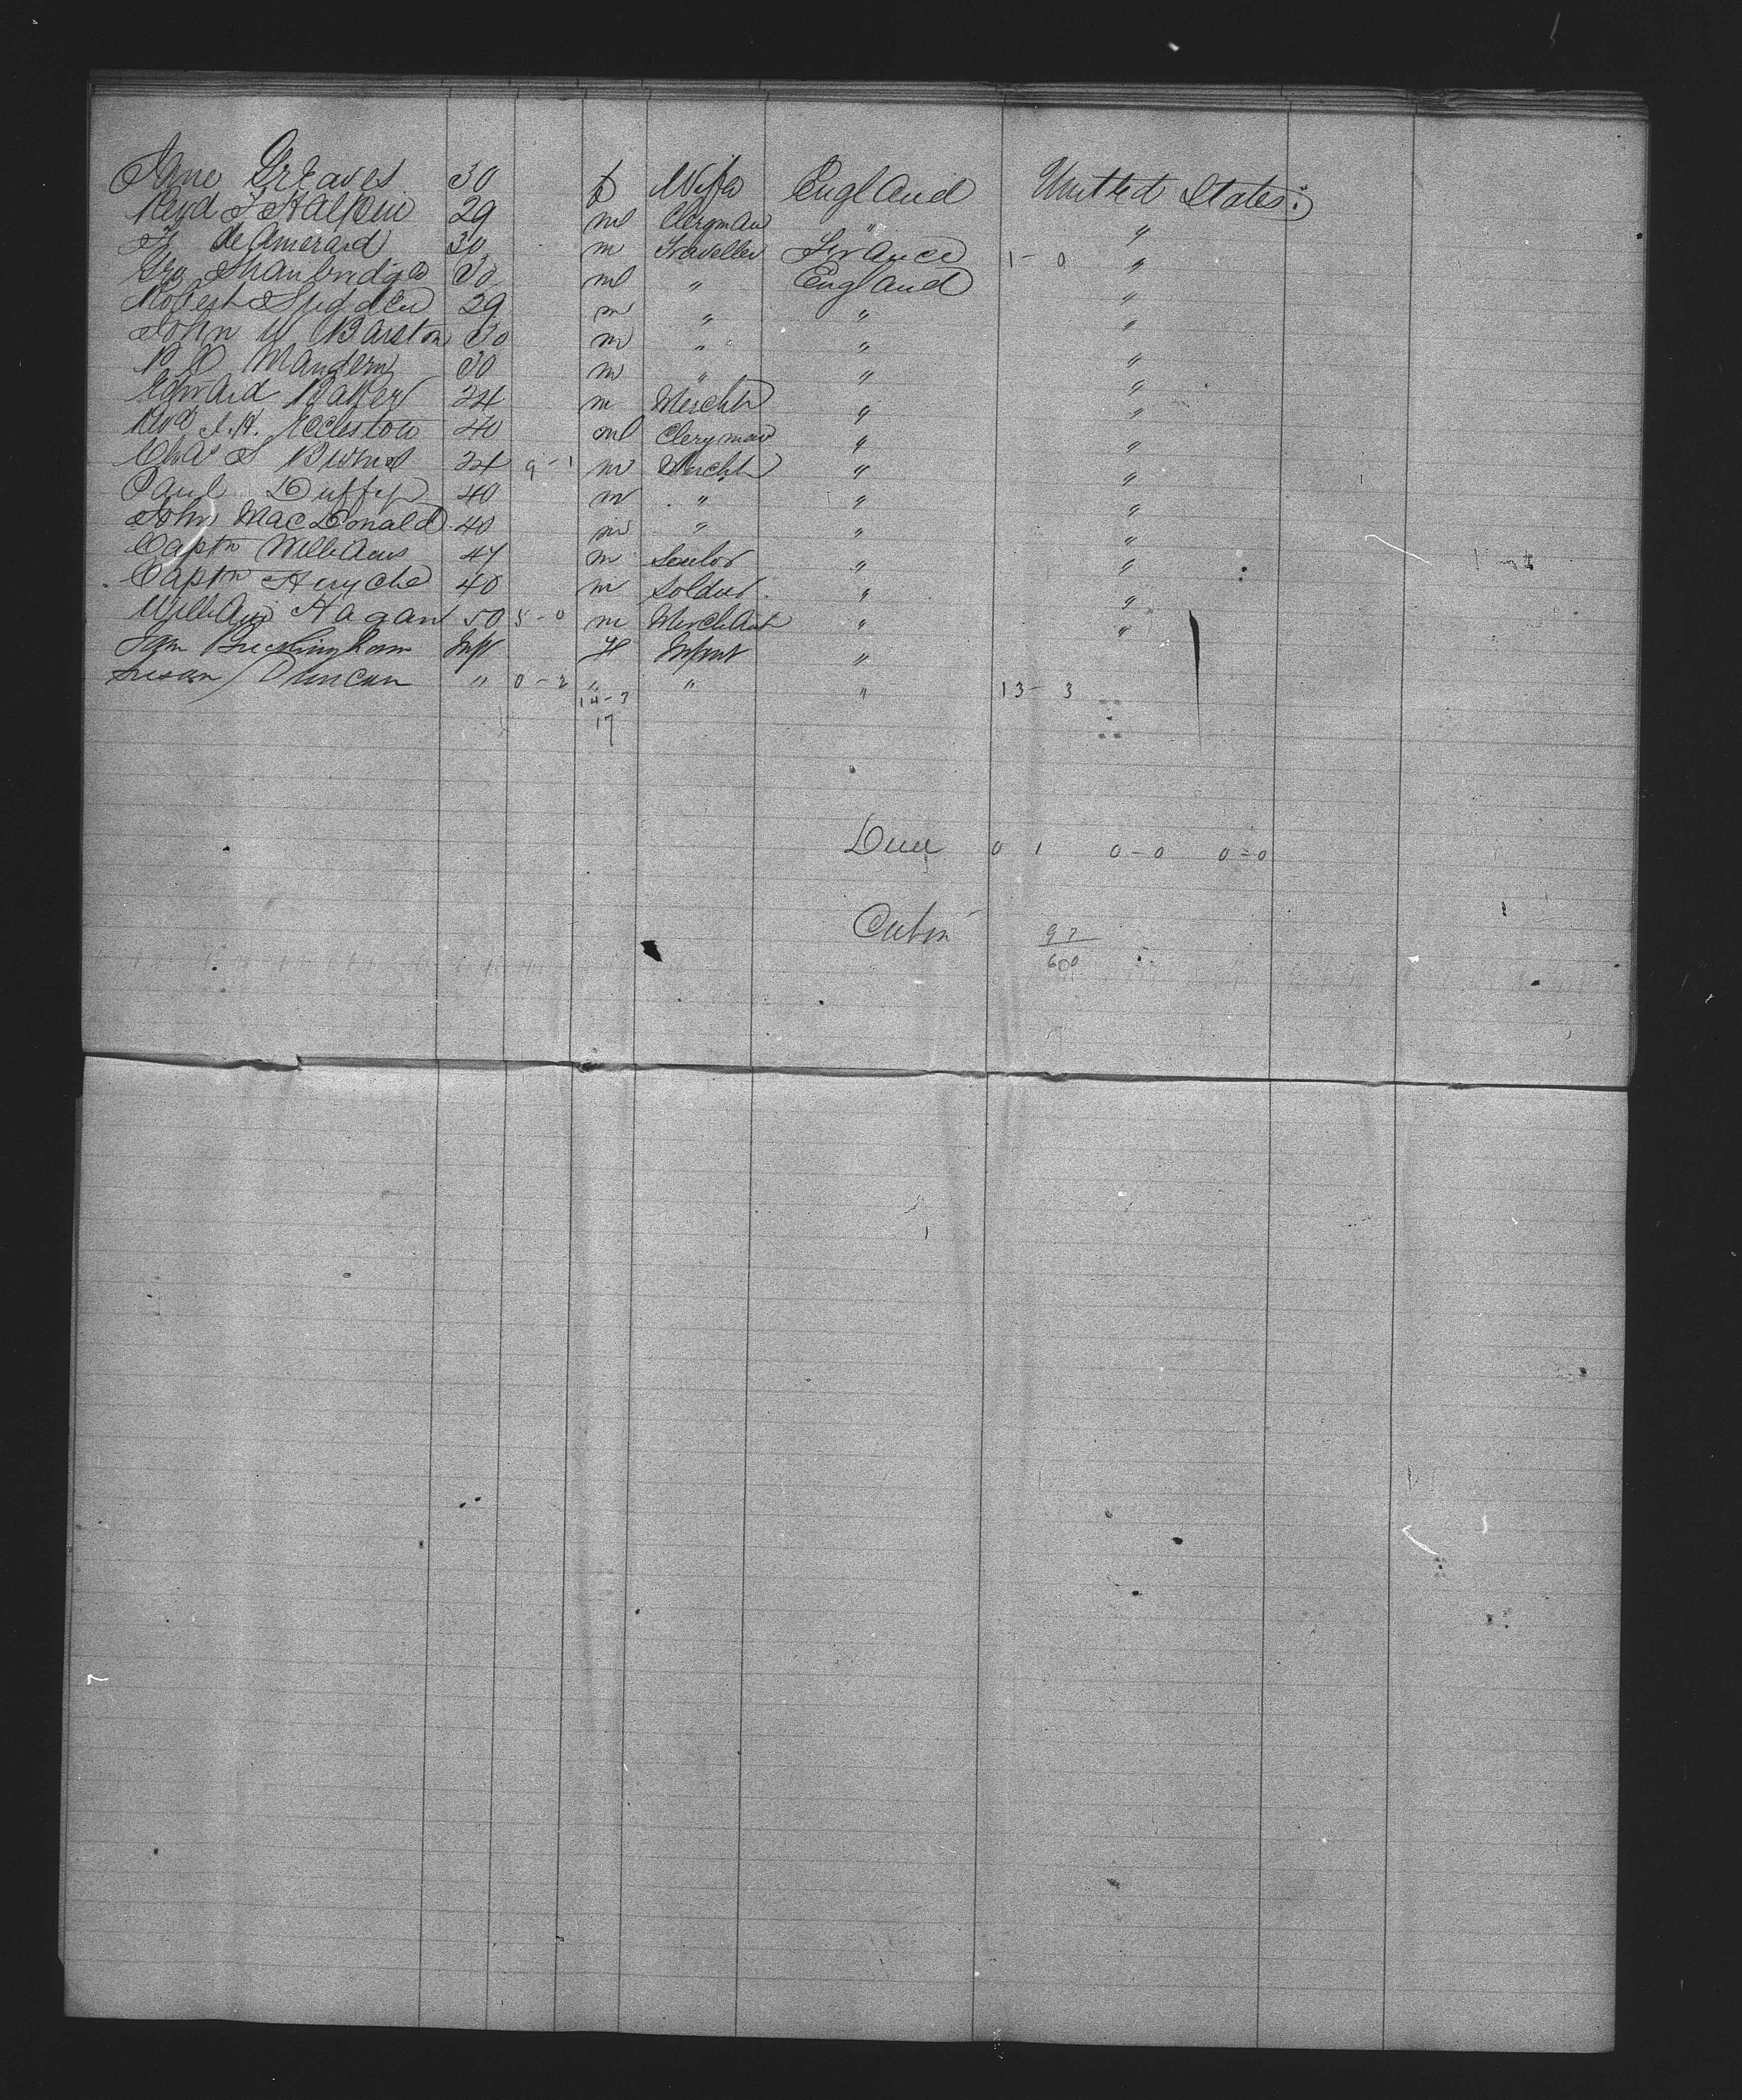 Jane Greaves 30 f Wife England United States
Revd J Halpin 29 m Clergman " "
F. de Amerard 30 m Traveller France 1 - 0 "
Geo Shanbridge 30 m " England "
Robert Sugden 29 m " " "
John W Barston 30 m " " "
30 m " " "
Edward Baker 24 m Mercht " "
Revd J. H. Eccleston 40 m Clergman " "
Chas S 24 9 - 1 m Mercht " "
Paul Duffy 40 m " " "
John MacDonald 40 m " " "
Captn Williams 47 m " "
Captn Huyche 40 m Soldier " "
William Hagan 50 5 - 0 m Merchant " "
Buckingham Inft F Infant "
Susan Duncan " 0 - 2 " " " 13 - 3
14 - 3
17
0 1 0 - 0 0 - 0
97
600